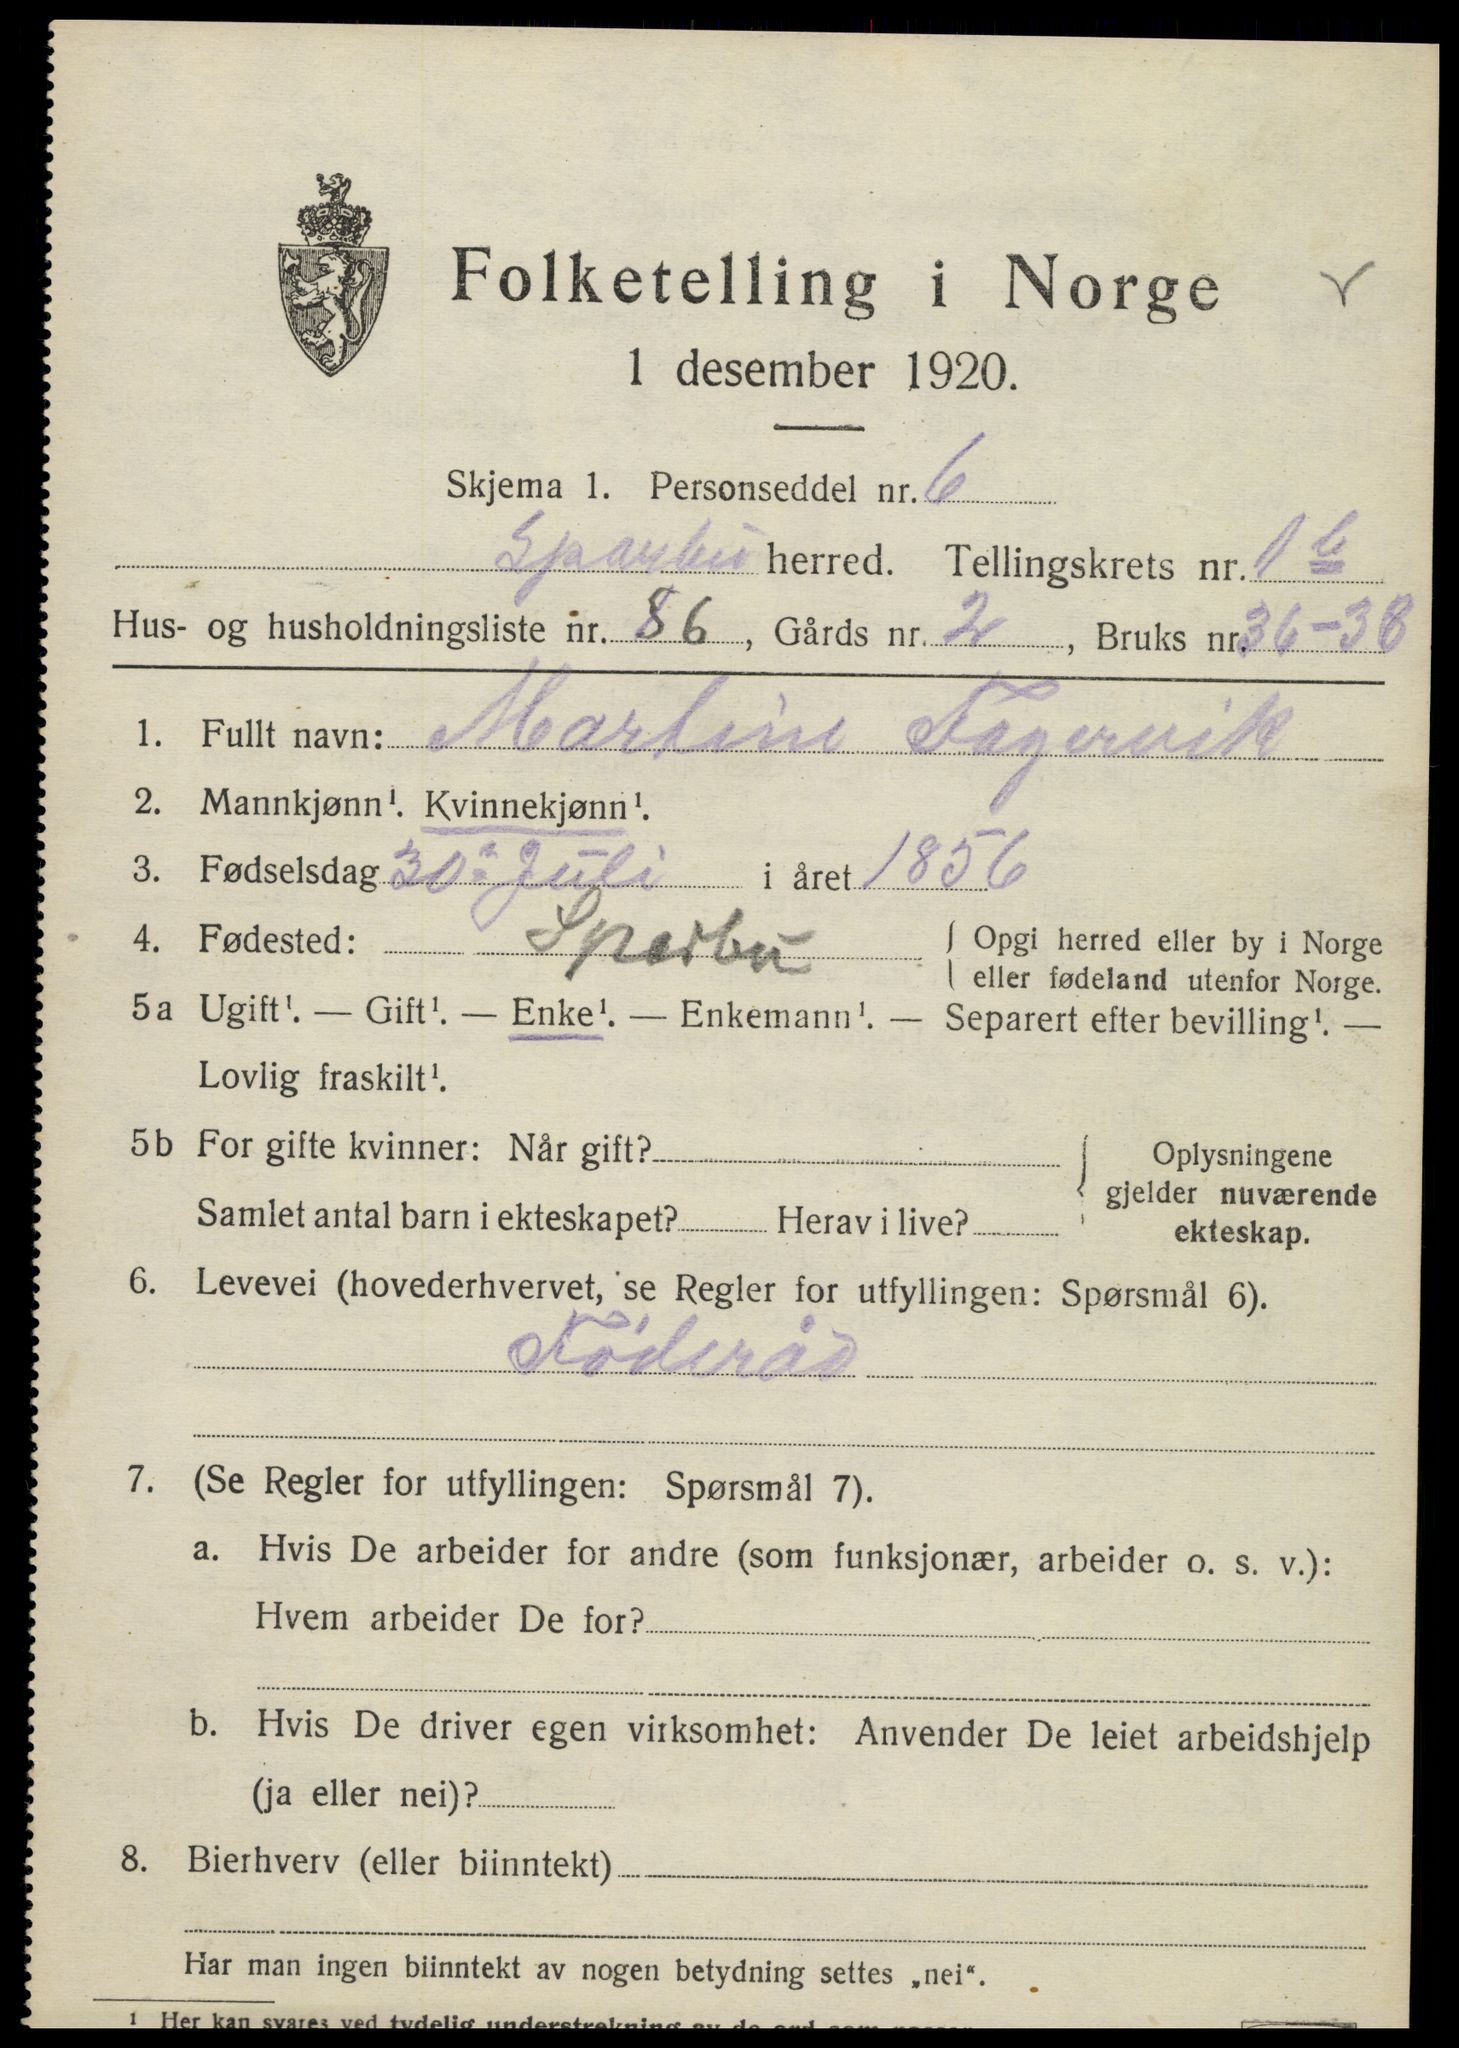 Folketelling i Norge
1 desember 1920.
Skjema 1. Personseddel nr. 6
Sparbu herred. Tellingskrets nr. 1 b
Hus- og husholdningsliste nr. 86, Gårds nr. 2, Bruks nr. 36-38
1. Fullt navn: Martine Fagervik
2. Mannkjønn¹. Kvinnekjønn¹.
3. Fødselsdag 30. Juli i året 1856
4. Fødested: Sparbu { Opgi herred eller by i Norge
eller fødeland utenfor Norge.
5a Ugift¹. — Gift¹. — Enke¹. — Enkemann¹. — Separert efter bevilling¹. —
Lovlig fraskilt¹.
5b For gifte kvinner: Når gift?
Samlet antal barn i ekteskapet? Herav i live?
{ Oplysningene
gjelder nuværende
ekteskap.
6. Levevei (hovederhvervet, se Regler for utfyllingen: Spørsmål 6).
Föderåd
7. (Se Regler for utfyllingen: Spørsmål 7).
a. Hvis De arbeider for andre (som funksjonær, arbeider o. s. v.):
Hvem arbeider De for?
b. Hvis De driver egen virksomhet: Anvender De leiet arbeidshjelp
(ja eller nei)?
8. Bierhverv (eller biinntekt)
Har man ingen biinntekt av nogen betydning settes „nei“.
¹ Her kan svares ved tydelig understrekning av de ord som